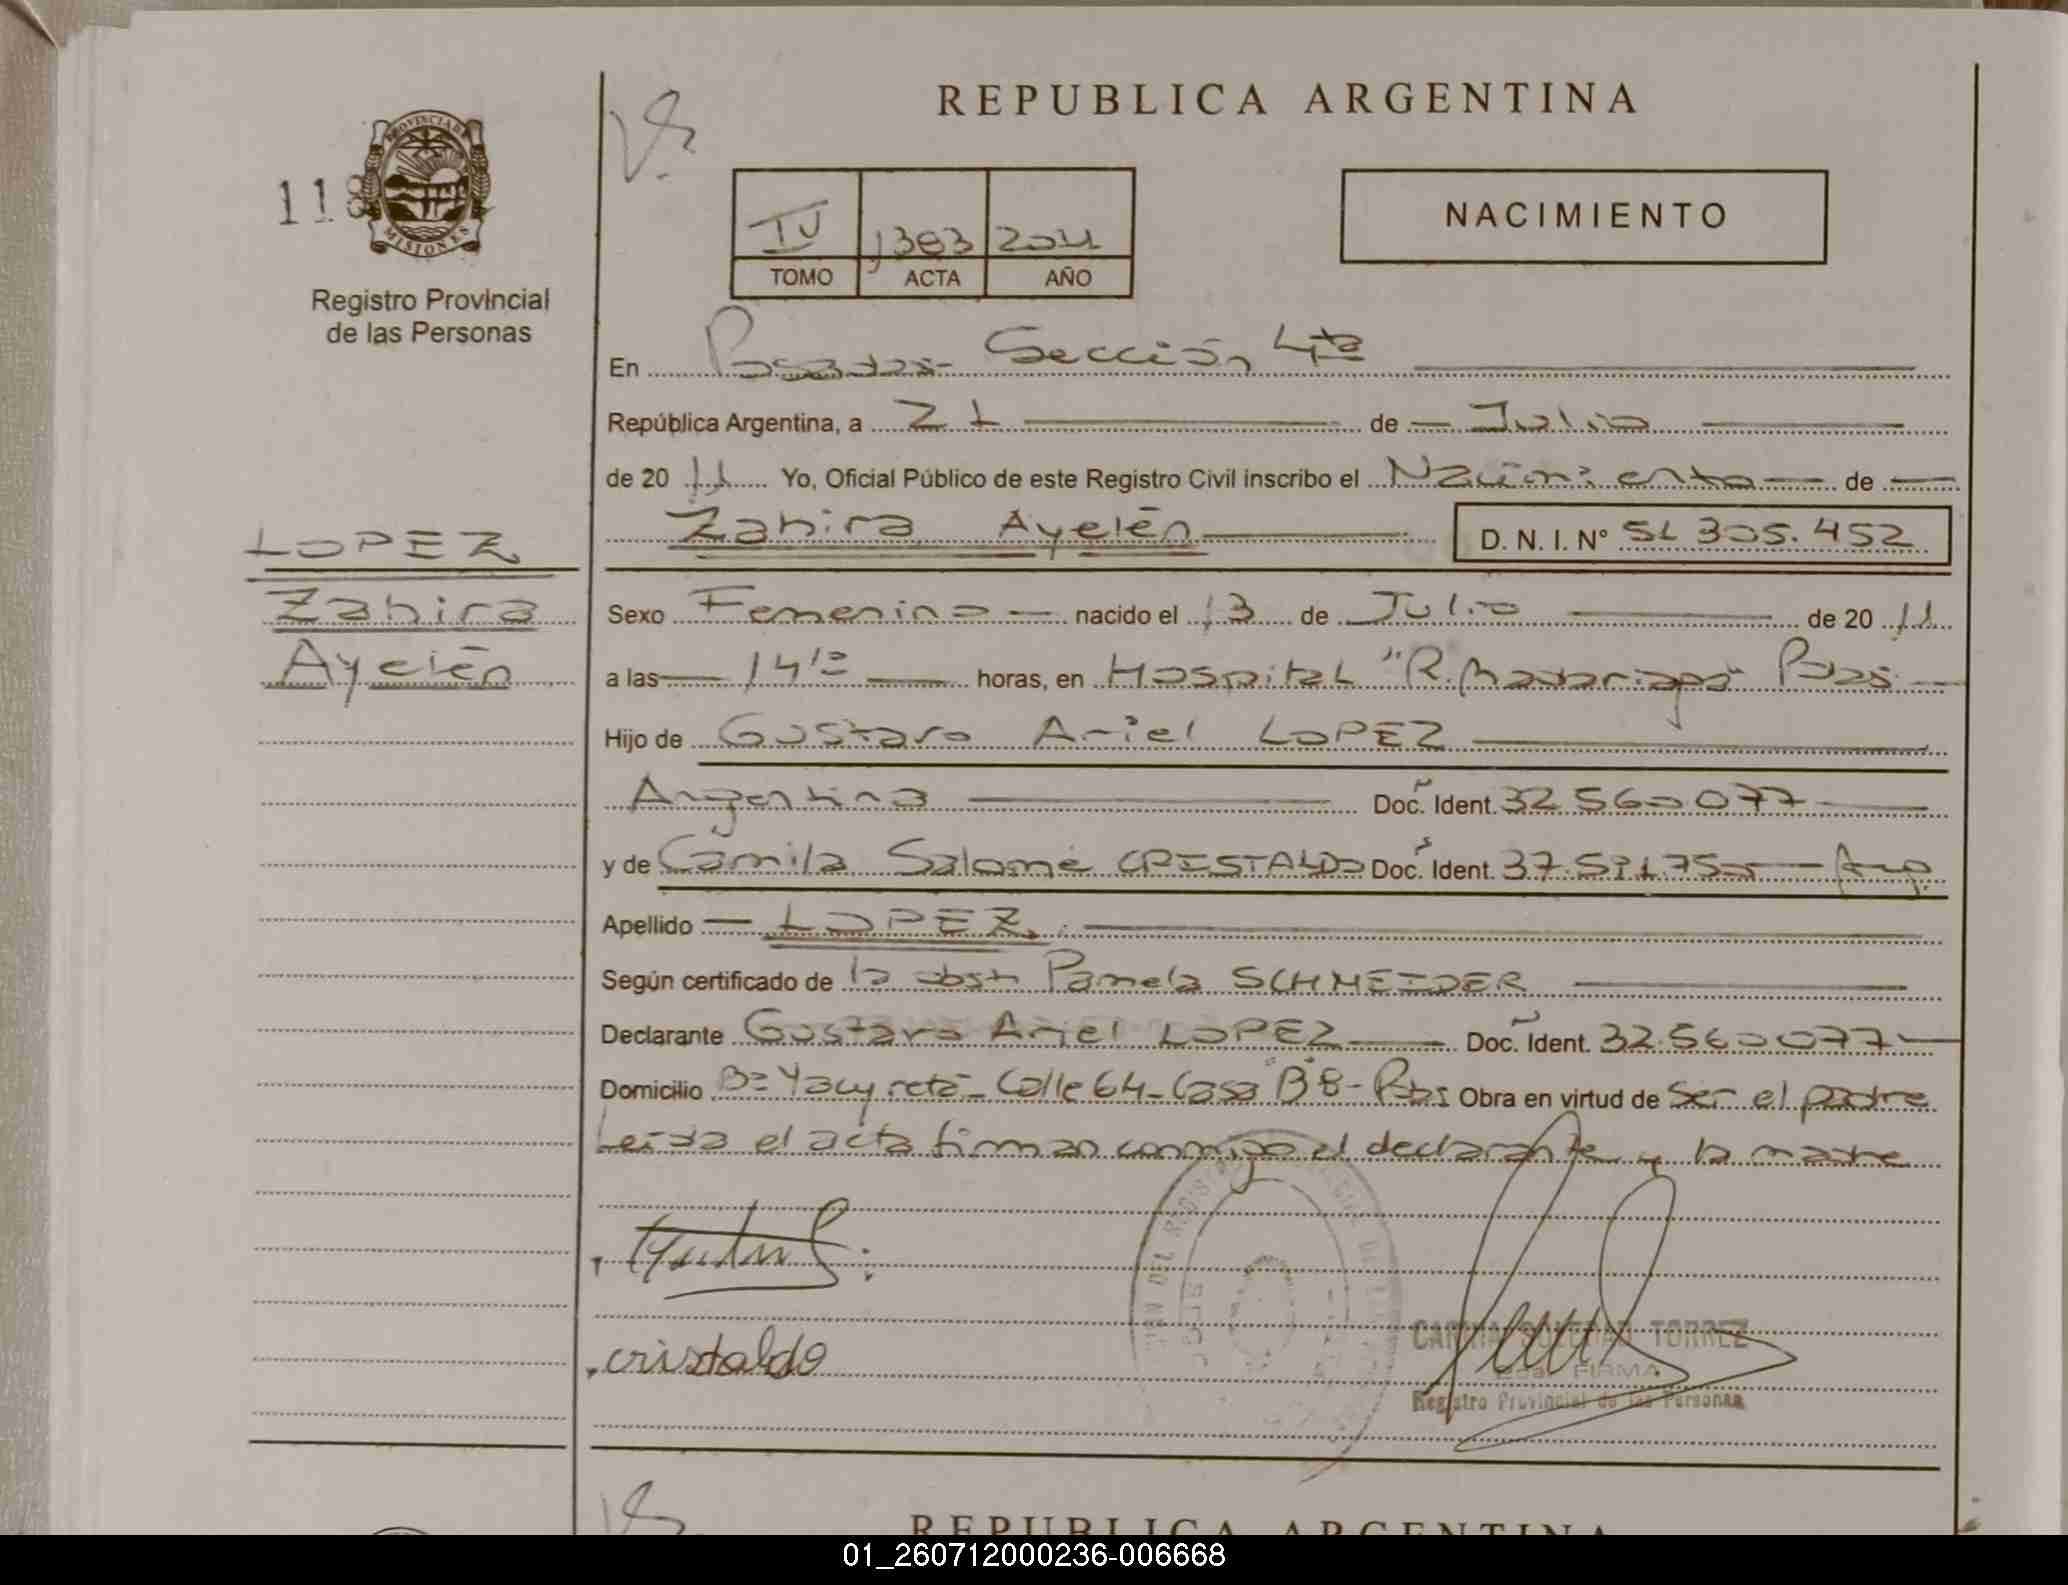 REPUBLICA ARGENTINA
118
PROVINCIA DE MISIONES
Registro Provincial
de las Personas
IV 1383 2011
TOMO ACTA AÑO
NACIMIENTO
En Posadas- Sección 4ta
República Argentina, a 21 de Julio
de 20 11 Yo, Oficial Público de este Registro Civil inscribo el Nacimiento de
Zahira Ayelén D. N. I. Nº 51 305.452
LOPEZ
Zahira
Ayelén
Sexo Femenino nacido el 13 de Julio de 20 11
a las 14 10 horas, en Hospital "R. Madariaga" Pdas
Hijo de Gustavo Ariel LOPEZ
Argentina Doc. Ident. 32.560.077
y de Camila Salomé CRISTALDO Doc. Ident. 37.591.755 Arg.
Apellido LOPEZ
Según certificado de la obst. Pamela SCHNEIDER
Declarante Gustavo Ariel LOPEZ Doc. Ident. 32.560.077
Domicilio Bº Yacyretá- Calle 64- Casa "B" 8- Pdas Obra en virtud de ser el padre
Leída el acta firman conmigo el declarante y la madre
cristaldo
SOLEDAD TORREZ
FIRMA
Registro Provincial de las Personas
REPUBLICA ARGENTINA
01_260712000236-006668